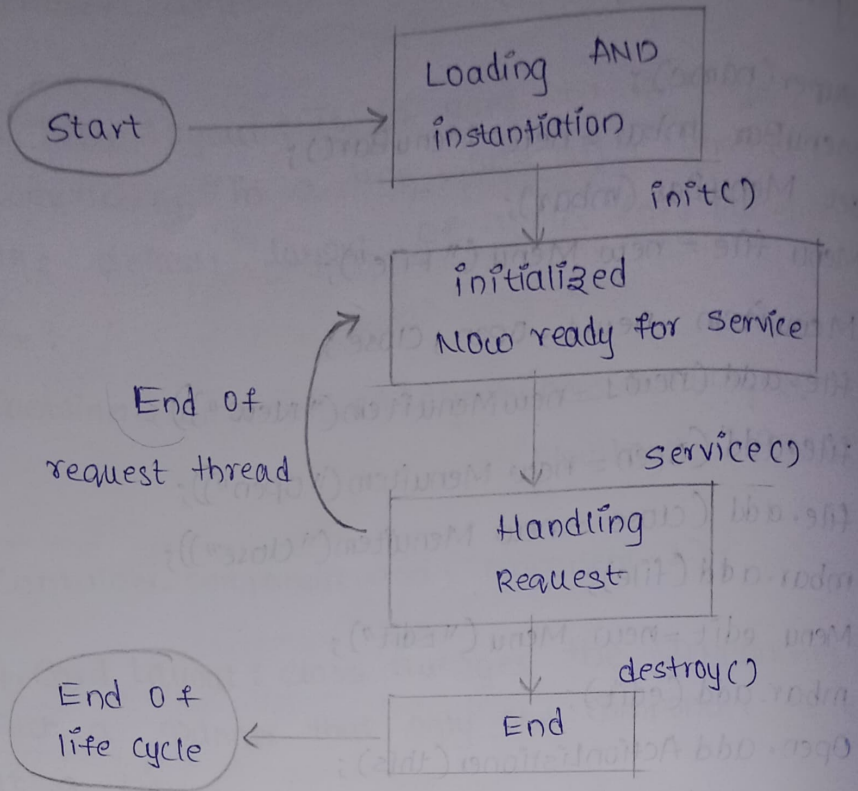 Start
Loading AND
instantiation
init()
initialized
Now ready for service
End of
request thread
service()
Handling
Request
destroy()
End
End of
life cycle